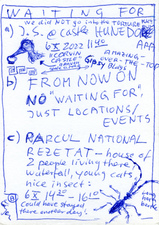 WAITING FOR
we did NOT go into the TORTURE
a) J.S. @ castle HUNEDOARA
6 X 2022 11 45
"CORVIN CASTLE"
AMAZING-
OVER-THE-TOP
Gipsy
b) FROM NOW ON
NO "WAITING FOR",
JUST LOCATIONS/
EVENTS
c) PARCUL NATIONAL
REZETAT - house of
2 people living there,
waterfall, young cats,
nice insect:
6 X 14 30 - 16 10
Could have stayed
there another day!